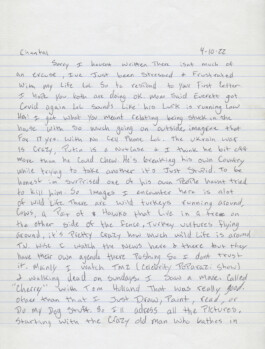 Chantal 4-10-22
Sorry I havent written There isnt much of
an excuse, I've Just been Stressed & Frustrated
With my Life Lol. So to respond to your First Letter
I hope you both are doing OK. mom Said Everette got
Covid again Lol Sounds Like his Luck is running Low
HA! I get what You Meant relating being Stuck in the
house with So much going on outside, imagine that
For 17 yrs With no Cell Phone Lol. The Ukraine War
is Crazy, Putin is a nutcase & I think he bit off
More than he could Chew. He's breaking his own Country
While trying to take another it's Just Stupid To be
honest im Surprised one of his own People havent tried
to Kill him. So Images I encounter here is alot
of Wild Life. There are Wild turkeys running around,
Cats, A Pair of Hawks that Live in a tree on
the other Side of the Fence, Turkey Vultures flying
around, it's Pretty Crazy how much Wild Life is around
I watch the News here & there but they
have their own agenda there Pushing So I dont trust
it. Mainly I watch TMZ (Celebrity Paparazzi Show)
& Walking Dead on Sundays. I Saw a Movie Called
"Cherry" with Tom Holland That was really good.
other than that I Just Draw, Paint, read, or
Do My Dog Stuff. So I'll adress all the Pictures,
Starting With the Crazy old Man Who bathes in